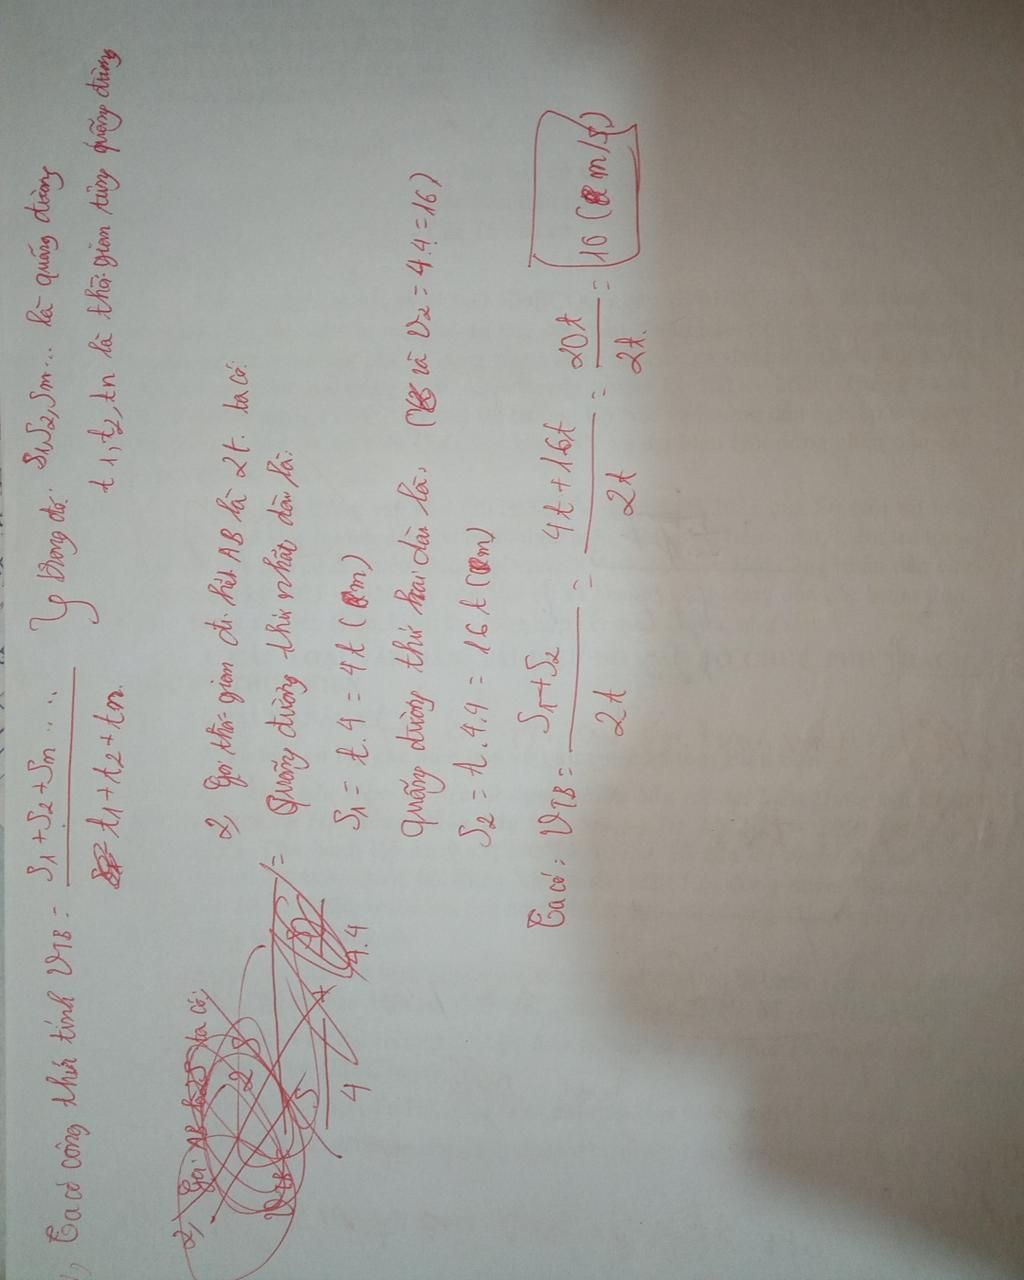 1, Ta có công thức tính VTB = S1 + S2 + Sm.... / t1 + t2 + tm.
trong đó: S1, S2, Sm... là quãng đường
t1, t2, tn là thời gian từng quãng đường
2, Gọi AB là 2S ta có:
VTB = 2S
4
4.4
2, Gọi thời gian đi hết AB là 2t. ta có:
Quãng đường thứ nhất dài là:
S1 = t.4 = 4t (m)
Quãng đường thứ hai dài là. ( và V2 = 4.4 = 16)
S2 = t.4.4 = 16t (m)
Ta có: VTB = S1+S2 / 2t = 4t+16t / 2t = 20t / 2t. = 10 (m/s)